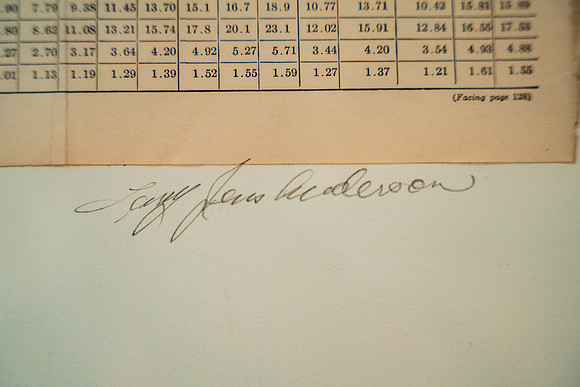 .90 7.79 9.38 11.45 13.70 15.1 16.7 18.9 10.77 13.71 10.42 15.81 15.89
.80 8.62 11.08 13.21 15.74 17.8 20.1 23.1 12.02 15.91 12.84 16.55 17.53
.27 2.70 3.17 3.64 4.20 4.92 5.27 5.71 3.44 4.20 3.54 4.93 4.88
.01 1.13 1.19 1.29 1.39 1.52 1.55 1.59 1.27 1.37 1.21 1.61 1.55
(Facing page 128)
Jens Anderson